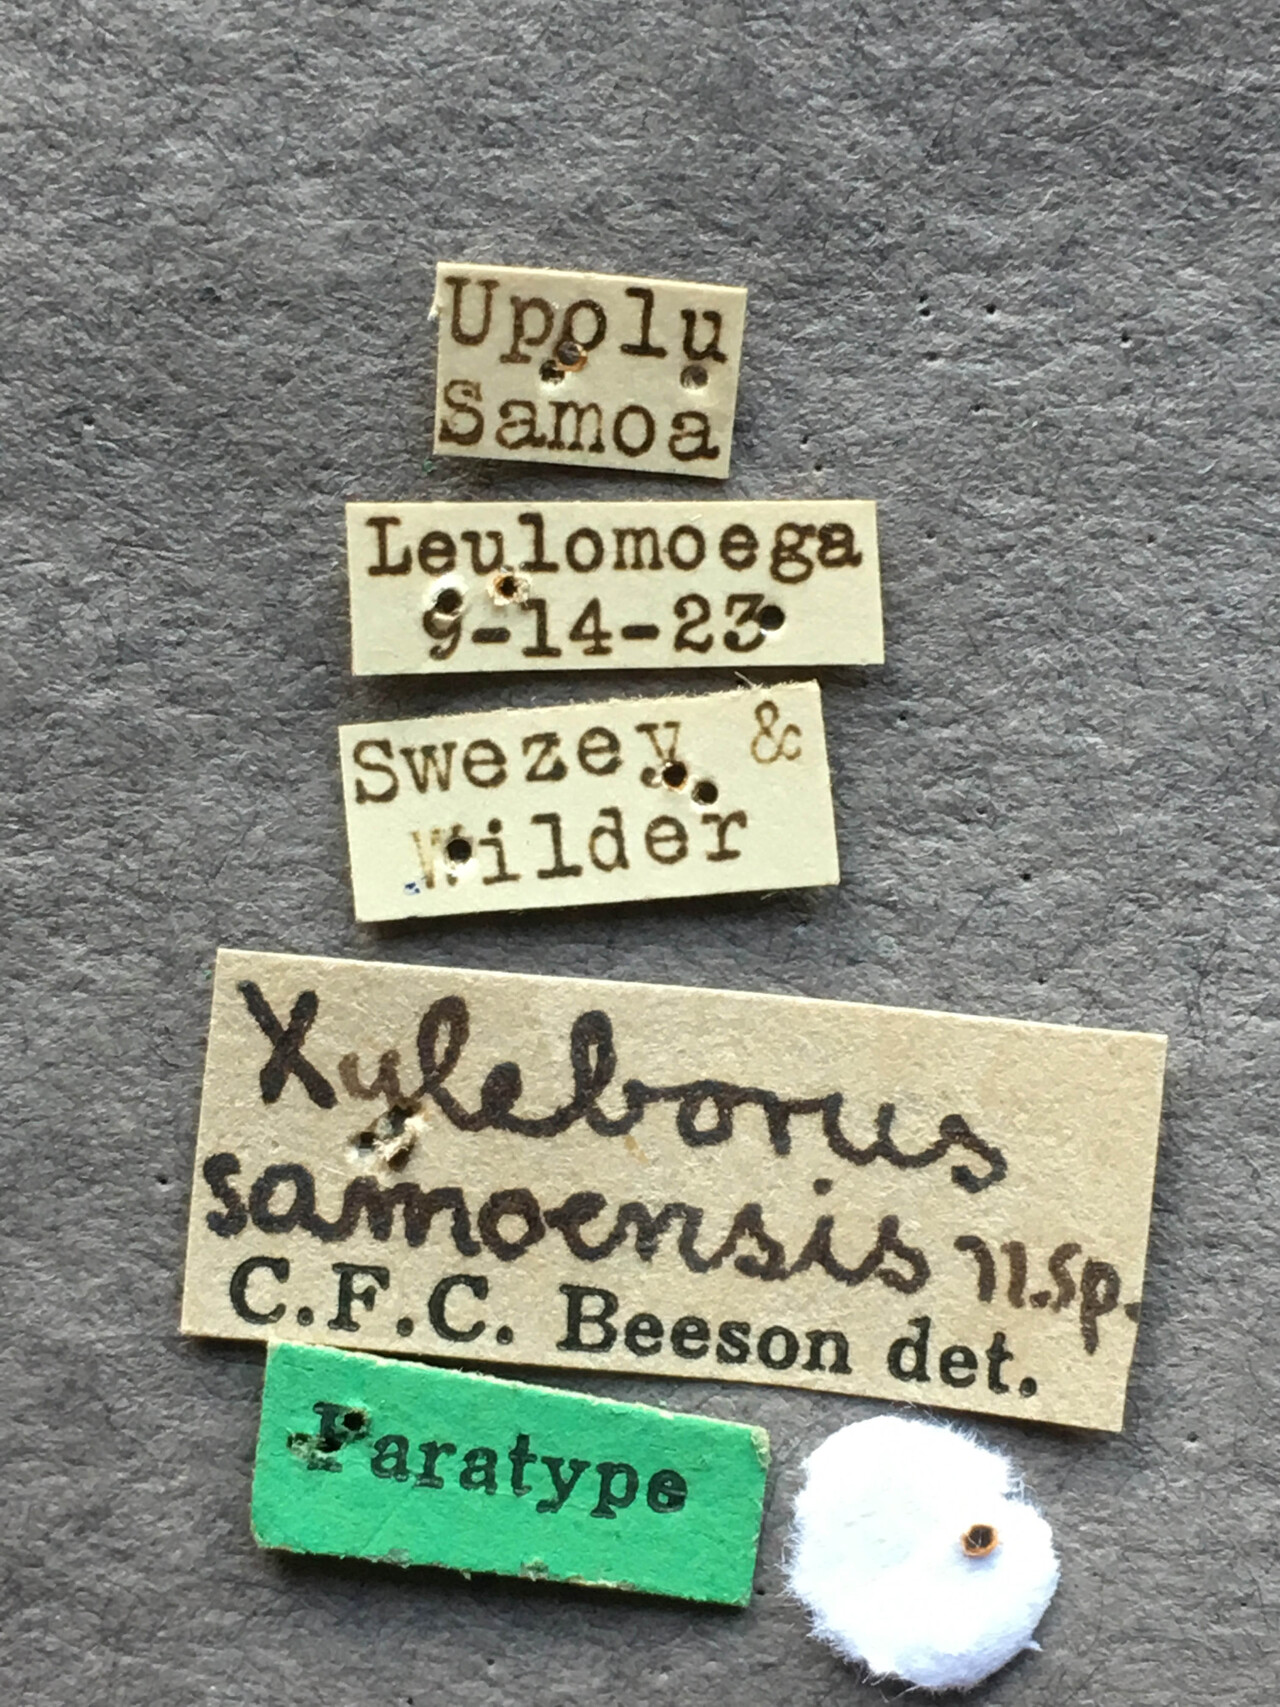 Upolu
Samoa
Leulomoega
9-14-23
Swezey &
Wilder
Xyleborus
samoensis n.sp.
C.F.C. Beeson det.
Paratype